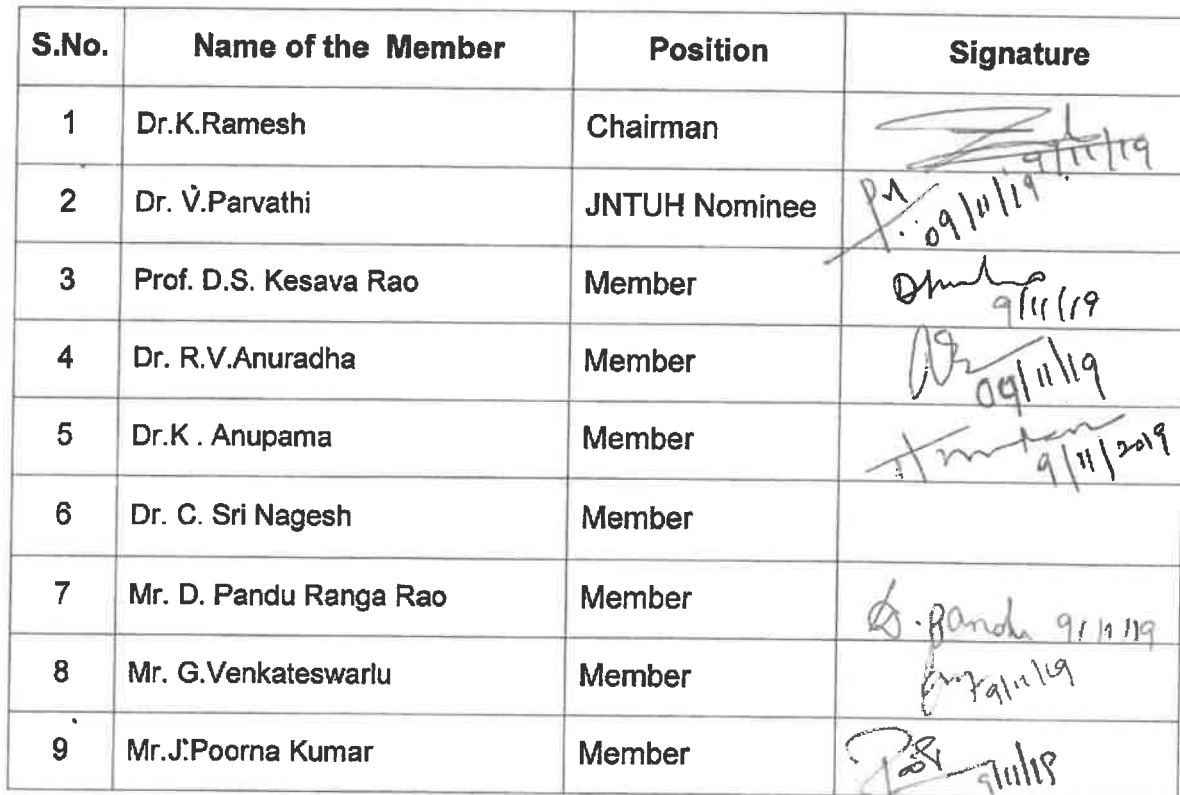 S.No. Name of the Member Position Signature
1 Dr.K.Ramesh Chairman 9/11/19
2 Dr. V.Parvathi JNTUH Nominee 09/11/19
3 Prof. D.S. Kesava Rao Member 9/11/19
4 Dr. R.V.Anuradha Member 09/11/19
5 Dr.K . Anupama Member 9/11/2019
6 Dr. C. Sri Nagesh Member
7 Mr. D. Pandu Ranga Rao Member D. Pandu 9/11/19
8 Mr. G.Venkateswarlu Member 9/11/19
9 Mr.J.Poorna Kumar Member